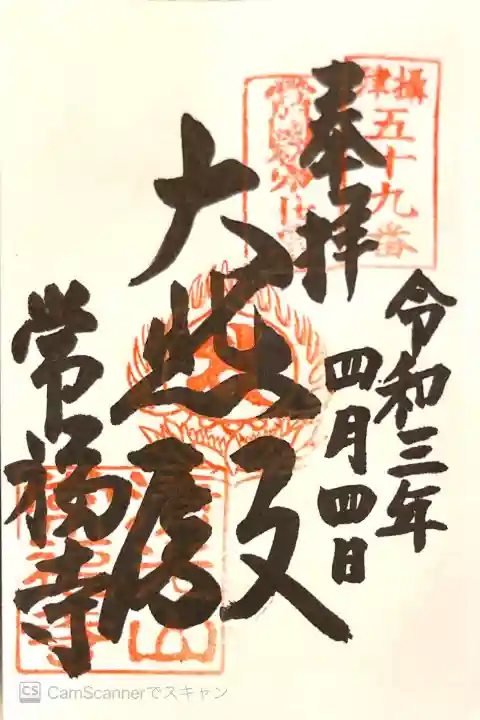 攝津
五十九番
奉拝
令和三年
四月四日
大悲殿
常福寺
CamScannerでスキャン